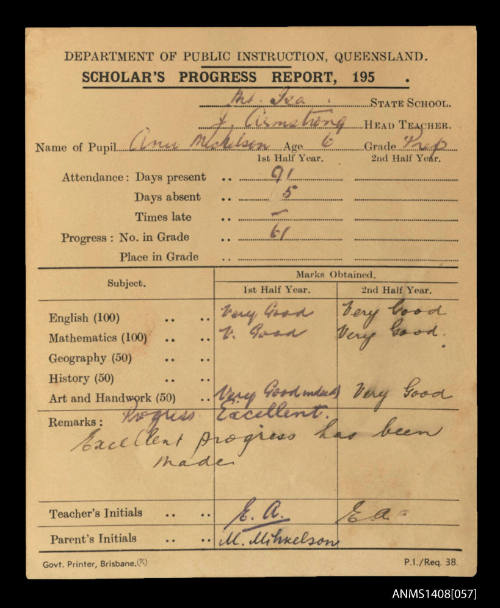 DEPARTMENT OF PUBLIC INSTRUCTION, QUEENSLAND.
SCHOLAR'S PROGRESS REPORT, 195 .
Mt. Isa. STATE SCHOOL.
J Armstrong HEAD TEACHER.
Name of Pupil Anu Age 6 Grade Prep
1st Half Year. 2nd Half Year.
Attendance : Days present .. 91
Days absent .. 5
Times late .. —
Progress : No. in Grade .. 61
Place in Grade ..
Subject. Marks Obtained.
1st Half Year. 2nd Half Year.
English (100) .. .. Very Good Very Good
Mathematics (100) .. .. V. Good Very Good.
Geography (50) .. ..
History (50) .. ..
Art and Handwork (50) .. Very Good indeed Very Good
Remarks : Progress Excellent.
Excellent progress has been
made.
Teacher's Initials .. .. E. A. E a.
Parent's Initials .. .. M. Mihkelson
Govt. Printer, Brisbane. P.I./Req. 38.
ANMS1408[057]